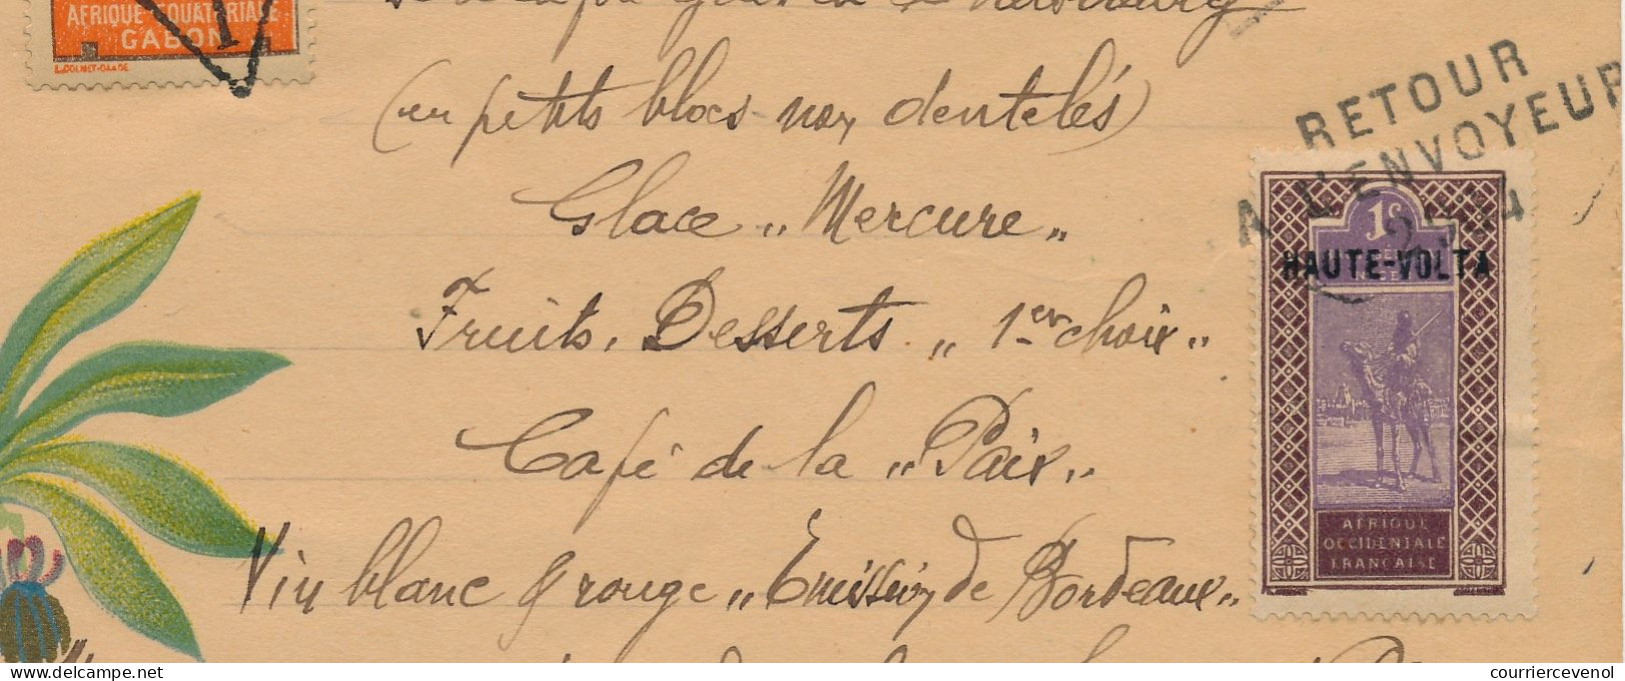 AFRIQUE-EQUATORIALE
GABON
T
(en petits blocs non dentelés)
RETOUR
A L'ENVOYEUR
Glace „Mercure„
1c
HAUTE-VOLTA
Fruits, Desserts „ 1er choix„
Café de la „Paix„
AFRIQUE
OCCIDENTALE
FRANÇAISE
Vin blanc & rouge „Emission de Bordeaux„
courriercevenol